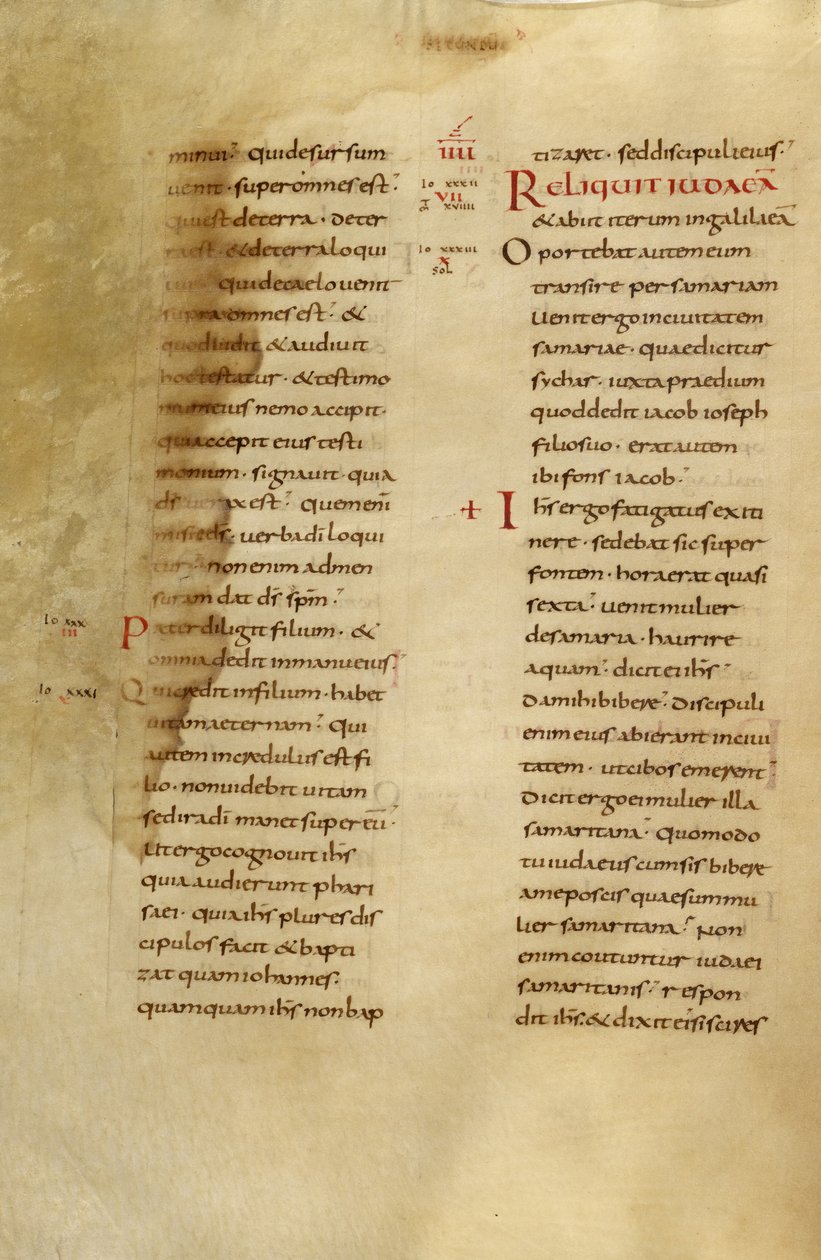 SECUNDU
minui. Qui desursum
uenit · super omnes est ·
qui est de terra · de ter
ra est · & de terra loqui
tur · Qui de caelo uenit
supra omnes est · &
quod uidit & audiuit
hoc testatur · & testimo
nium eius nemo accipit ·
qui accepit eius testi
monium · signauit · quia
ds̄ uerax est · Quem enī
misit ds̄ · uerba dī loqui
tur · non enim ad men
suram dat ds̄ sp̄m ·
Io xxx
iii
Pater diligit filium · &
omnia dedit in manu eius ·
Io xxxi
Qui credit in filium · habet
uitam aeternam · Qui
autem incredulus est fi
lio · non uidebit uitam
sed ira dī manet super eū ·
Ut ergo cognouit ihs̄
quia audierunt phari
saei · quia ihs̄ plures dis
cipulos facit & bapti
zat quam iohannes ·
quamquam ihs̄ non bap
tizaret · sed discipuli eius ·
iiii
Io xxxii
VII
xviiii
RELIQUIT IUDAEĀ
& abiit iterum in galilaeā
Io xxxiii
x
sol
Oportebat autem eum
transire per samariam
Uenit ergo in ciuitatem
samariae · quae dicitur
sychar · iuxta praedium
quod dedit iacob ioseph
filio suo · erat autem
ibi fons iacob ·
+ Ihs̄ ergo fatigatus ex iti
nere · sedebat sic super
fontem · hora erat quasi
sexta · uenit mulier
de samaria · haurire
aquam · dicit ei ihs̄ ·
Da mihi bibere · Discipuli
enim eius abierant in ciui
tatem · ut cibos emerent ·
Dicit ergo ei mulier illa
samaritana · Quomodo
tu iudaeus cum sis bibere
a me poscis quae sum mu
lier samaritana · Non
enim coutuntur iudaei
samaritanis · respon
dit ihs̄ · & dixit ei si scires